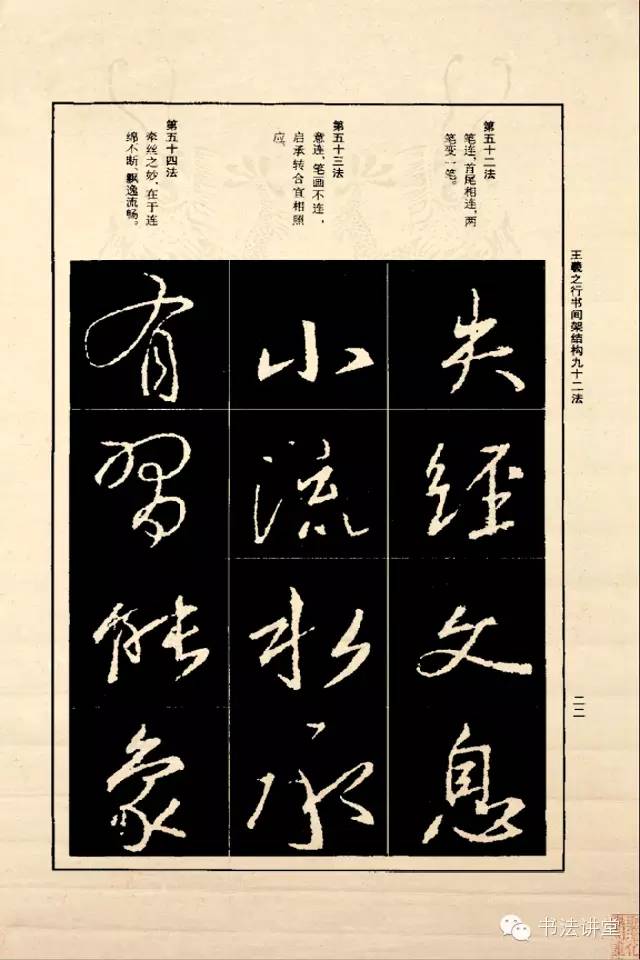 王羲之行书间架结构九十二法
二二
第五十二法
笔连,首尾相连,两
笔变一笔。
第五十三法
意连,笔画不连,
启承转合宜相照
应。
第五十四法
牵丝之妙,在于连
绵不断、飘逸流畅。
失
经
文
息
小
流
水
承
有
习
能
象
书法讲堂